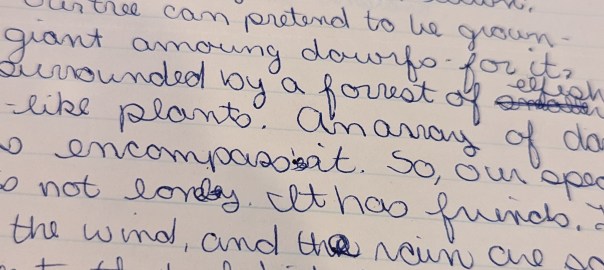 tree can pretend to be grown-
giant amoung dowrfs - for it,
surrounded by a forrest of elfish
-like plants. An array of da
o encompass it. So, our spec
o not lonely. It has friends.
the wind, and the rain are so